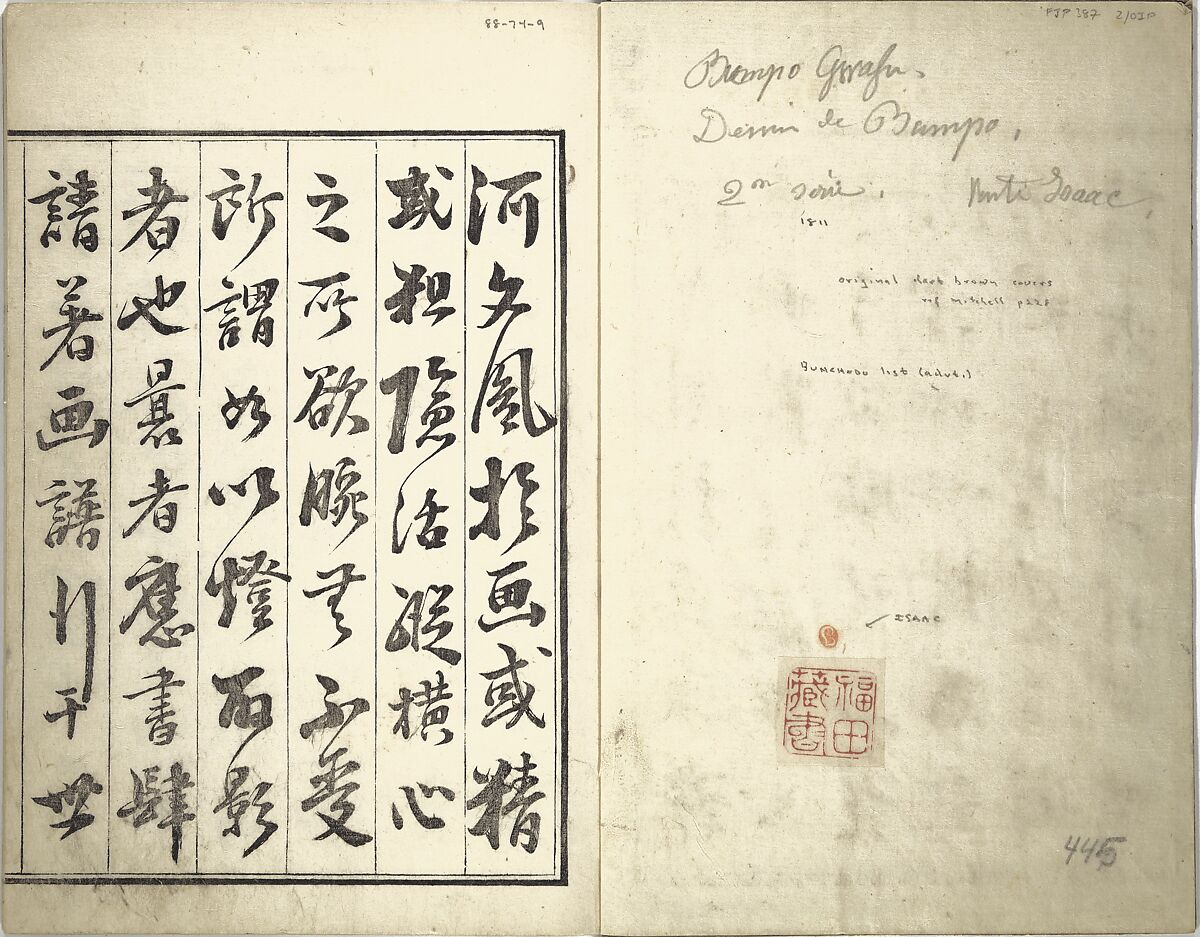 88-74-9
河文鳳於画或精
或粗隠活縱橫心
之所欲腕無不受
所謂如以燈取影
者也曩者應書肆
請著画譜行于世
FJP 387 2/OIP
Bumpo Gwafu.
Dessin de Bumpo,
2me série. Vente Isaac,
1811
original dark brown covers
ref Mitchell p228
BUNCHODO list (advt.)
ISAAC
福田
藏書
445